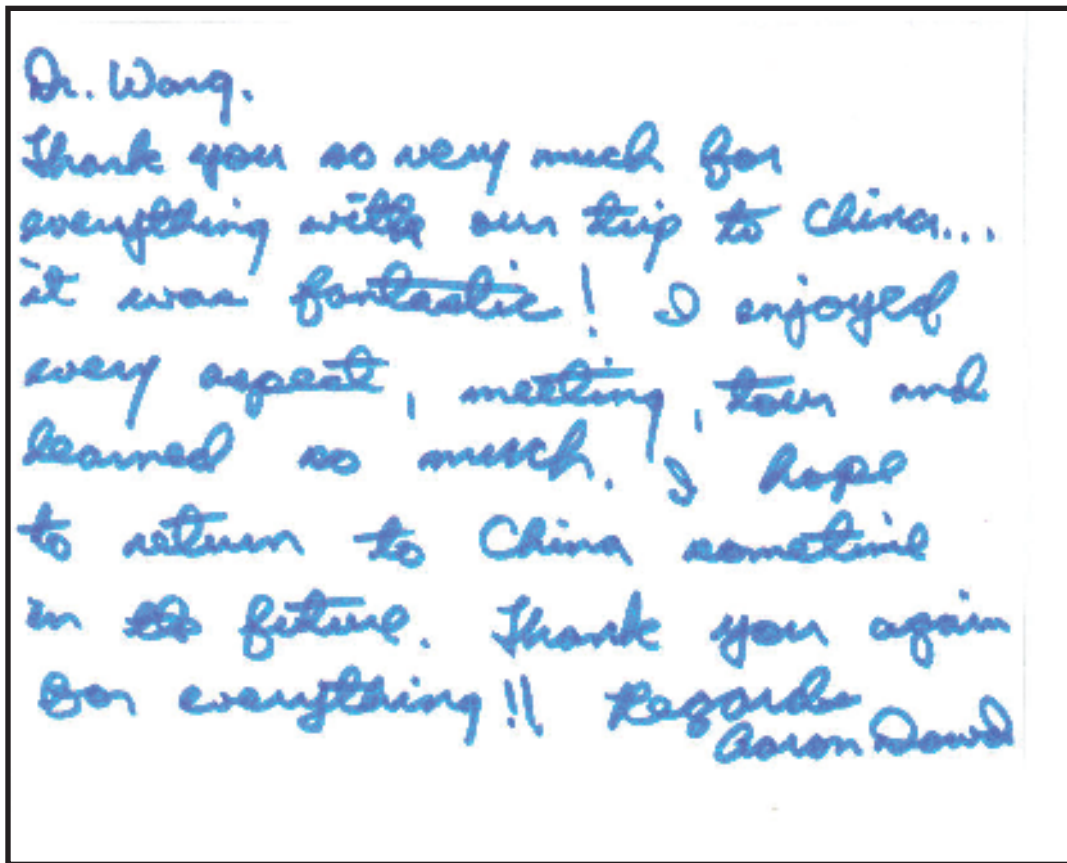 Dr. Wang.
Thank you so very much for
everything with our trip to China...
it was fantastic! I enjoyed
every aspect, meeting, tour and
learned so much. I hope
to return to China sometime
in the future. Thank you again
for everything!! Regards
Aaron Dowd